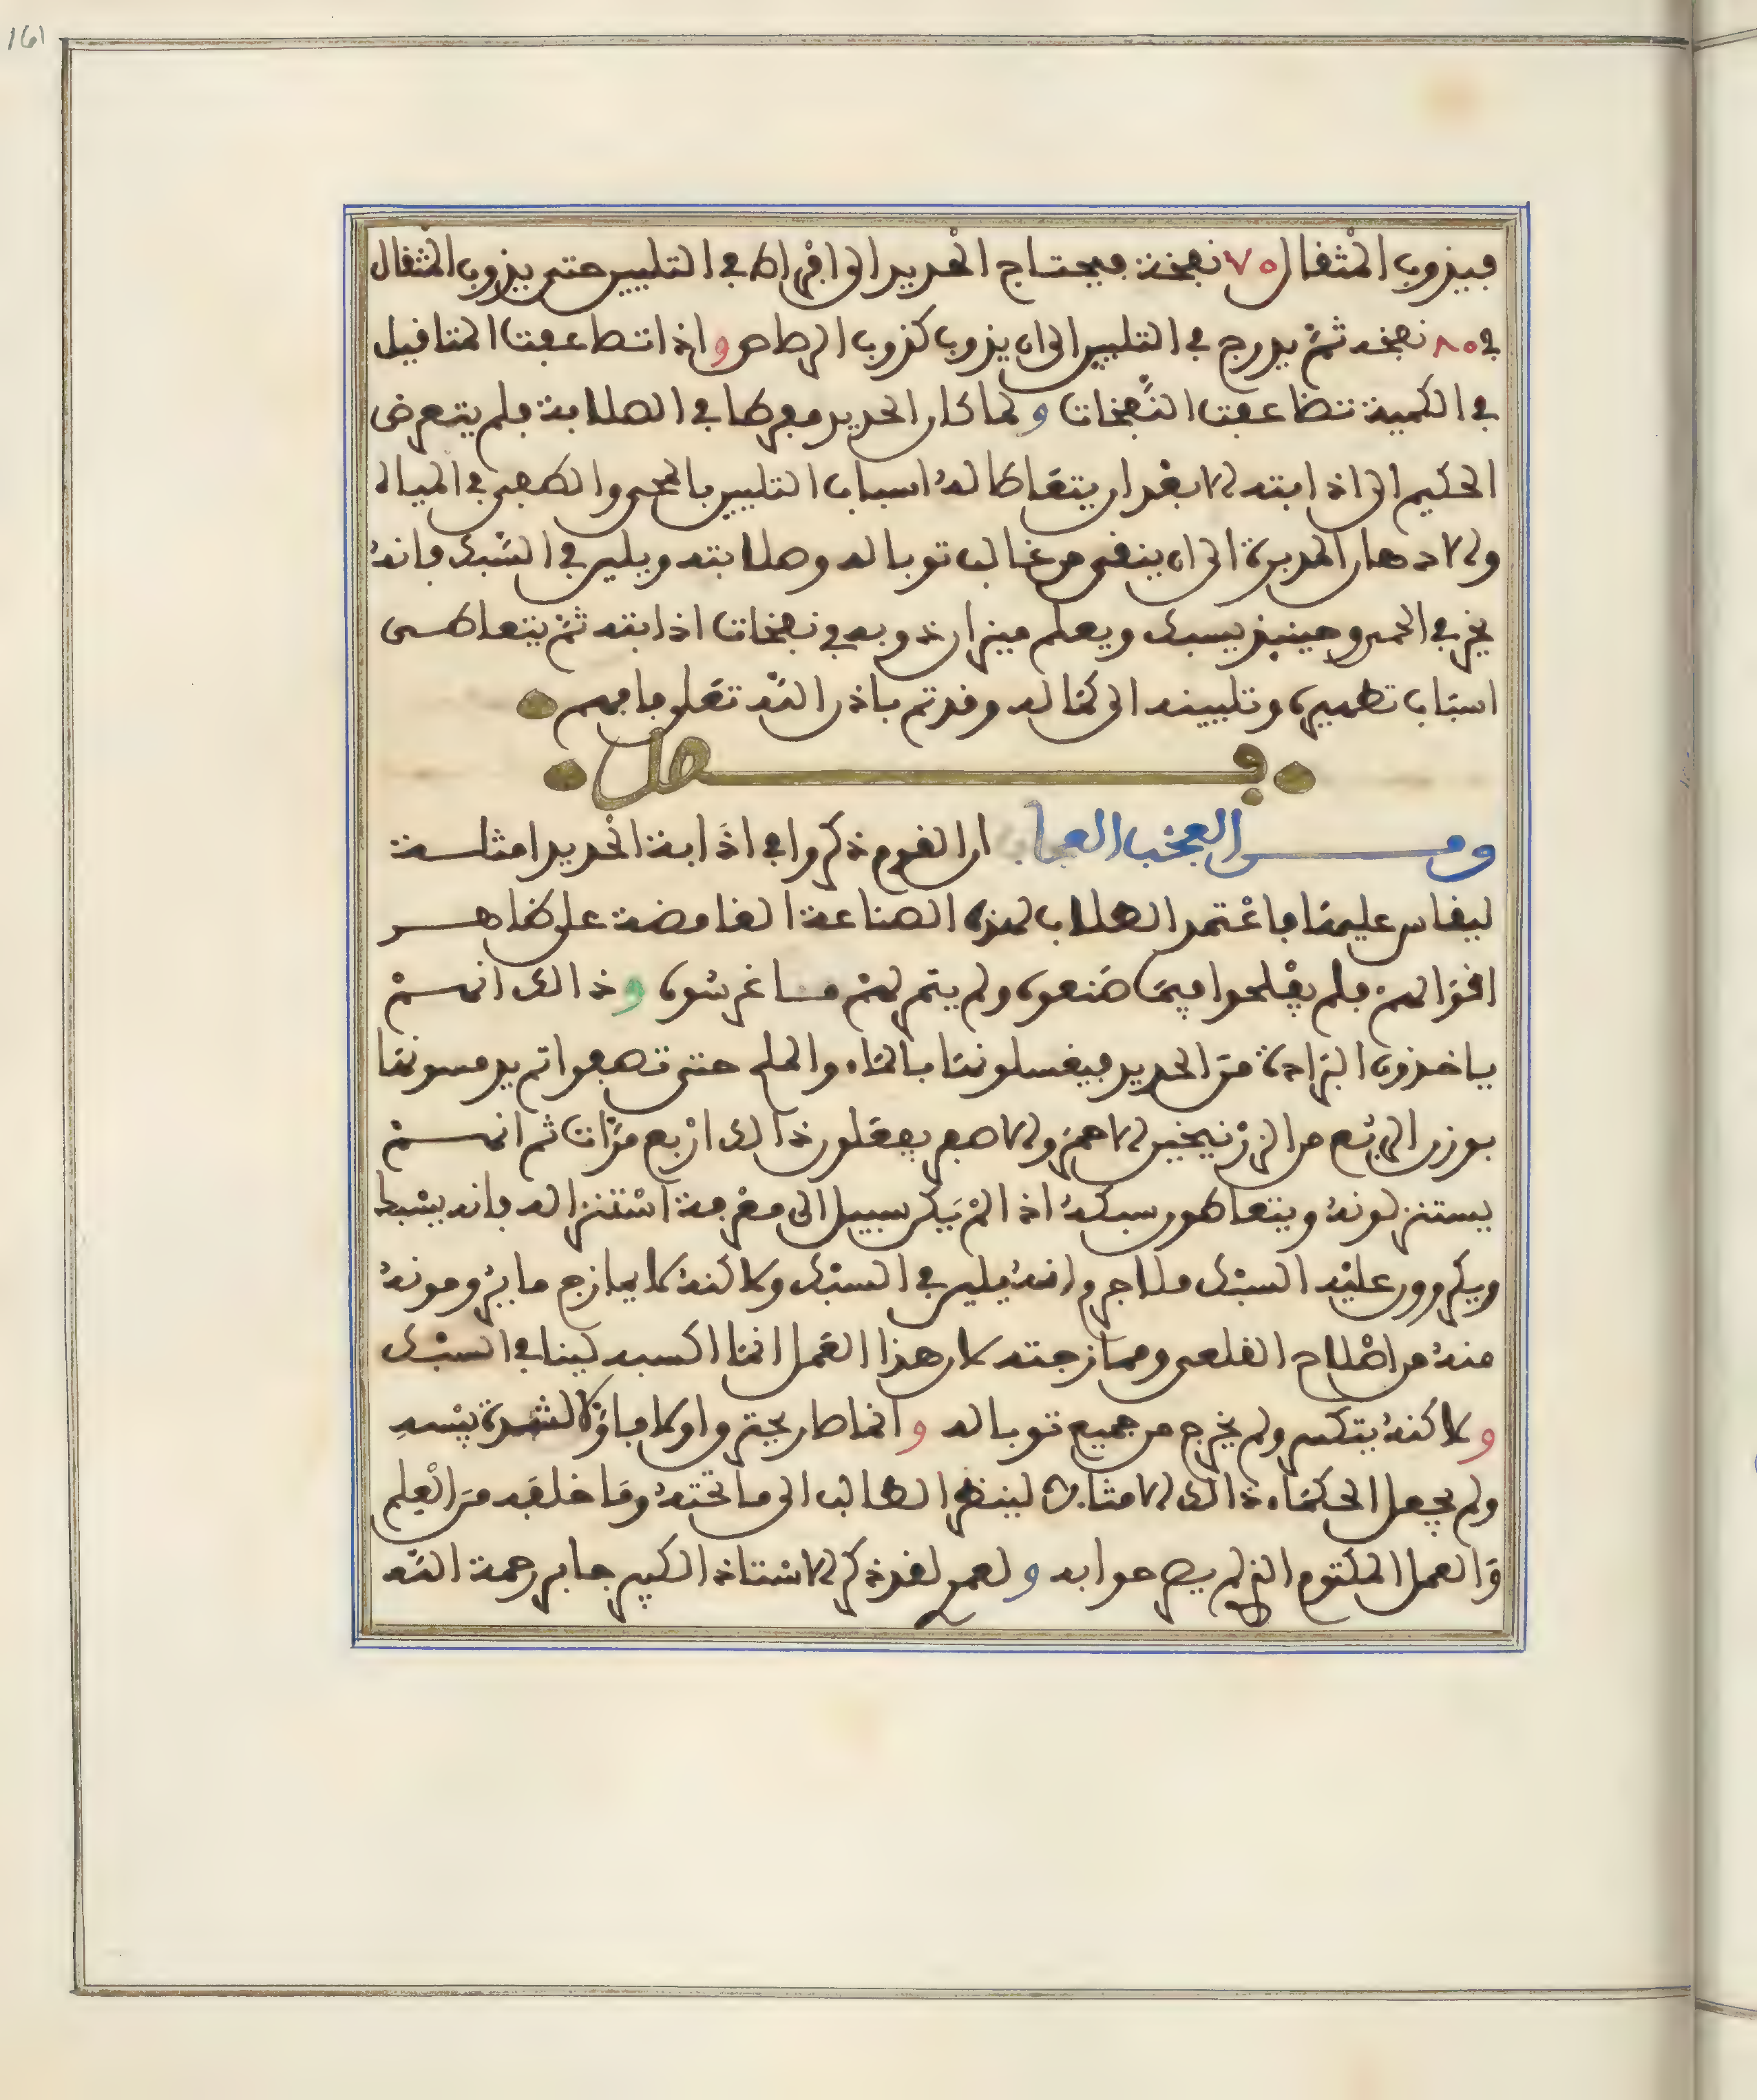 161
فيذوب المثقال ٧٥ نفخة فيحتاج الحديد الى افراط في التليين حتى يذوب المثقال
في ٨٥ نفخه ثم يدرج في التليين الى ان يذوب كذوب الرصاص واذا تضاعفت المثاقيل
في الكمية تتضاعف النفخات ولما كان الحديد مفرطا في الصلابة فلم يتعرض
الحكيم الى اذابته الا بعد ان يتعاطا له اسباب التليين بالحمي والطفي في المياه
والادهان المدبرة الى ان ينقى من غالب توباله وصلابته ويلين في السبك فانه
في الحمى وحينئذ يسبك ويعلم ميزان ذوبه في نفخات اذابته ثم يتعاطى
اسباب تطهيره وتليينه الى كماله وقد تم باذن الله تعلى فافهم
فصل
ومن العجب العجاب ان القوم ذكروا في اذابة الحديد امثلة
ليقاس عليها فاعتمد الطلاب لهذه الصناعة الغامضة على ظاهر
اقوالهم فلم يفلحوا فيما صنعوه ولم يتم لهم ما غرسوه وذالك انهم
ياخذون البرادة من الحديد فيغسلونها بالماء والملح حتى تصفوا ثم يدمسونها
بوزن الربع من الزرنيخين الاحمر والاصفر يفعلون ذالك اربع مرات ثم انهم
يستنزلونه ويتعاطون سبكه اذا لم يكن سبيل الى معرفة استنزاله فانه يشبط
ويكررون عليه السبك فلا جرم انه يلين في السبك ولاكنه لا يمازج ما يرومونه
منه من اصلاح القلعي وممازجته لان هذا العمل انما اكسبه لينا في السبك
ولاكنه يتكسر ولم يخرج من جميع توباله وانما طار بحته واولا فاولا
ولم يجعل الحكماء ذالك الامثالا لينظر الطالب الى ما تحته وما خلفه من العلم
والعمل المكتوم الذي لم يصرحوا به ولعمري لقد ذكر الاستاذ الكبير جابر رحمة الله